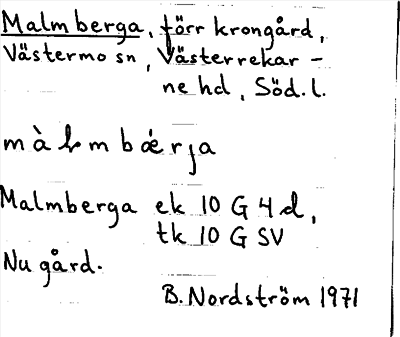 Malmberga, förr krongård,
Västermo sn, Västerrekar-
ne hd, Söd. l.
màlmbǽrja
Malmberga ek 10 G 4 d,
tk 10 G SV
Nu gård.
B. Nordström 1971